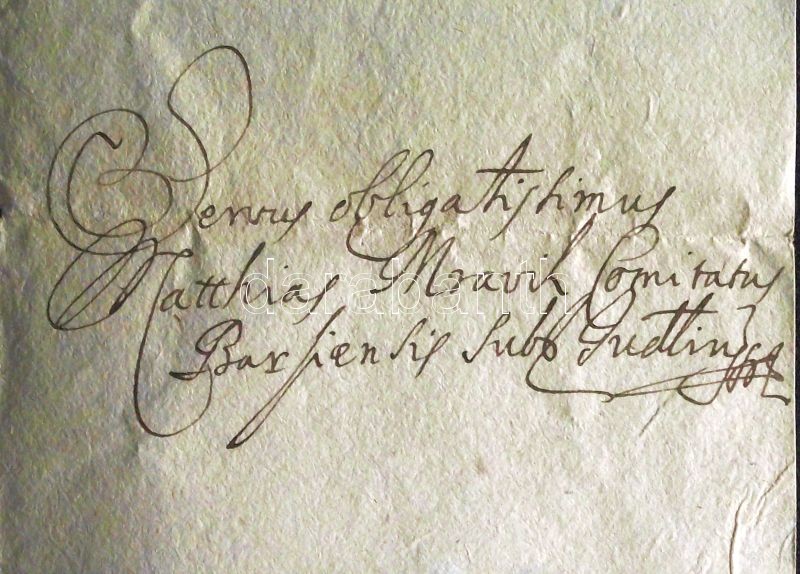 Servus obligatissimus
Matthias Mravik Comitatus
Barsiensis sub
darabanth